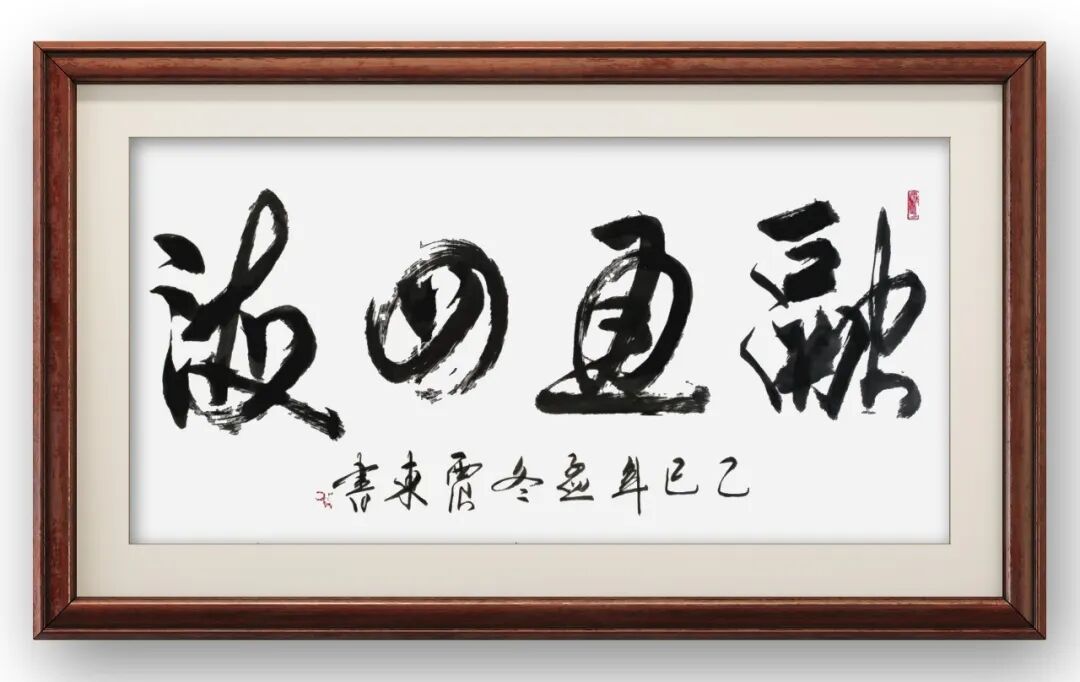 融通四海
乙巳年孟冬震東書